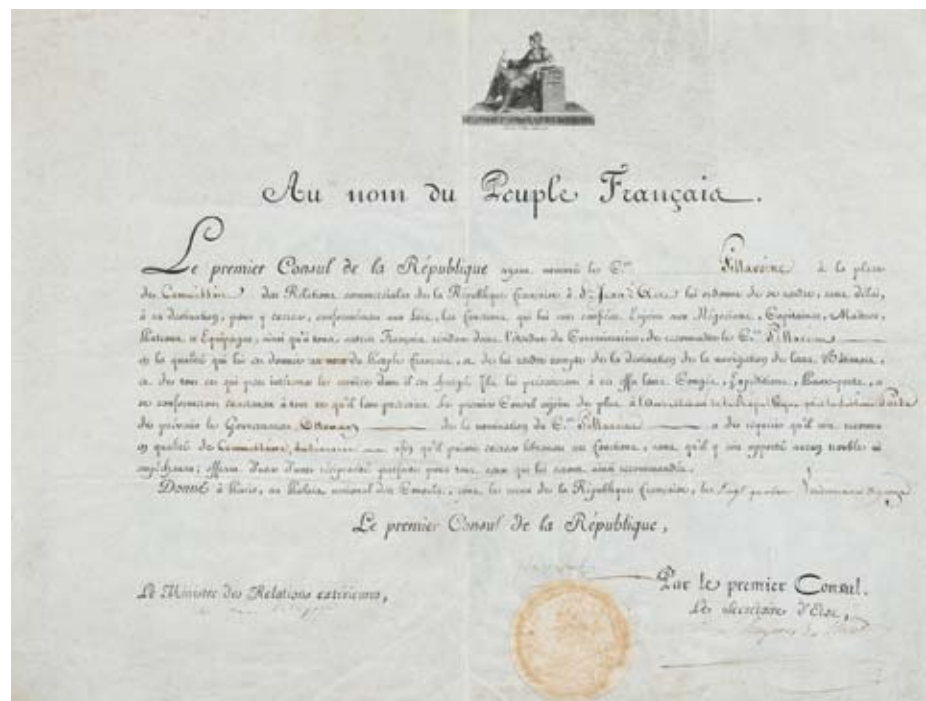 Au nom du Peuple Français.
Le premier Consul de la République ayant nommé le C.en Pillavoine à la place
de Commissaire des Relations commerciales de la République française à St. Jean d'Acre lui ordonne de se rendre, sans délai,
à sa destination, pour y exercer, conformément aux Lois, les fonctions qui lui sont confiées. Enjoint aux Négocians, Capitaines, Maîtres,
Patrons et Equipages, ainsi qu'à tous autres Français résidans dans l'étendue du Commissariat, de reconnaître le C.en Pillavoine
en la qualité qui lui est donnée au nom du Peuple français, et de lui rendre compte de la destination de la navigation de leurs Bâtimens,
et de tout ce qui peut intéresser le service dont il est chargé. Ils lui présenteront à cet effet leurs Congés, Expéditions, Passe-ports, et
se conformeront exactement à tout ce qu'il leur prescrira. Le premier Consul enjoint de plus à
de prévenir le Gouvernement Ottoman de la nomination du C.en Pillavoine et de requérir qu'il soit reconnu
en qualité de Commissaire, afin qu'il puisse exercer librement ses fonctions, sans qu'il y soit apporté aucun trouble ni
empêchement; offrant d'user d'une réciprocité parfaite pour tous ceux qui lui seront ainsi recommandés.
Donné à Paris, au Palais national des Consuls, sous le sceau de la République française, le vingt
Le premier Consul de la République,
Le Ministre des Relations extérieures,
Par le premier Consul.
Le Secrétaire d'Etat,